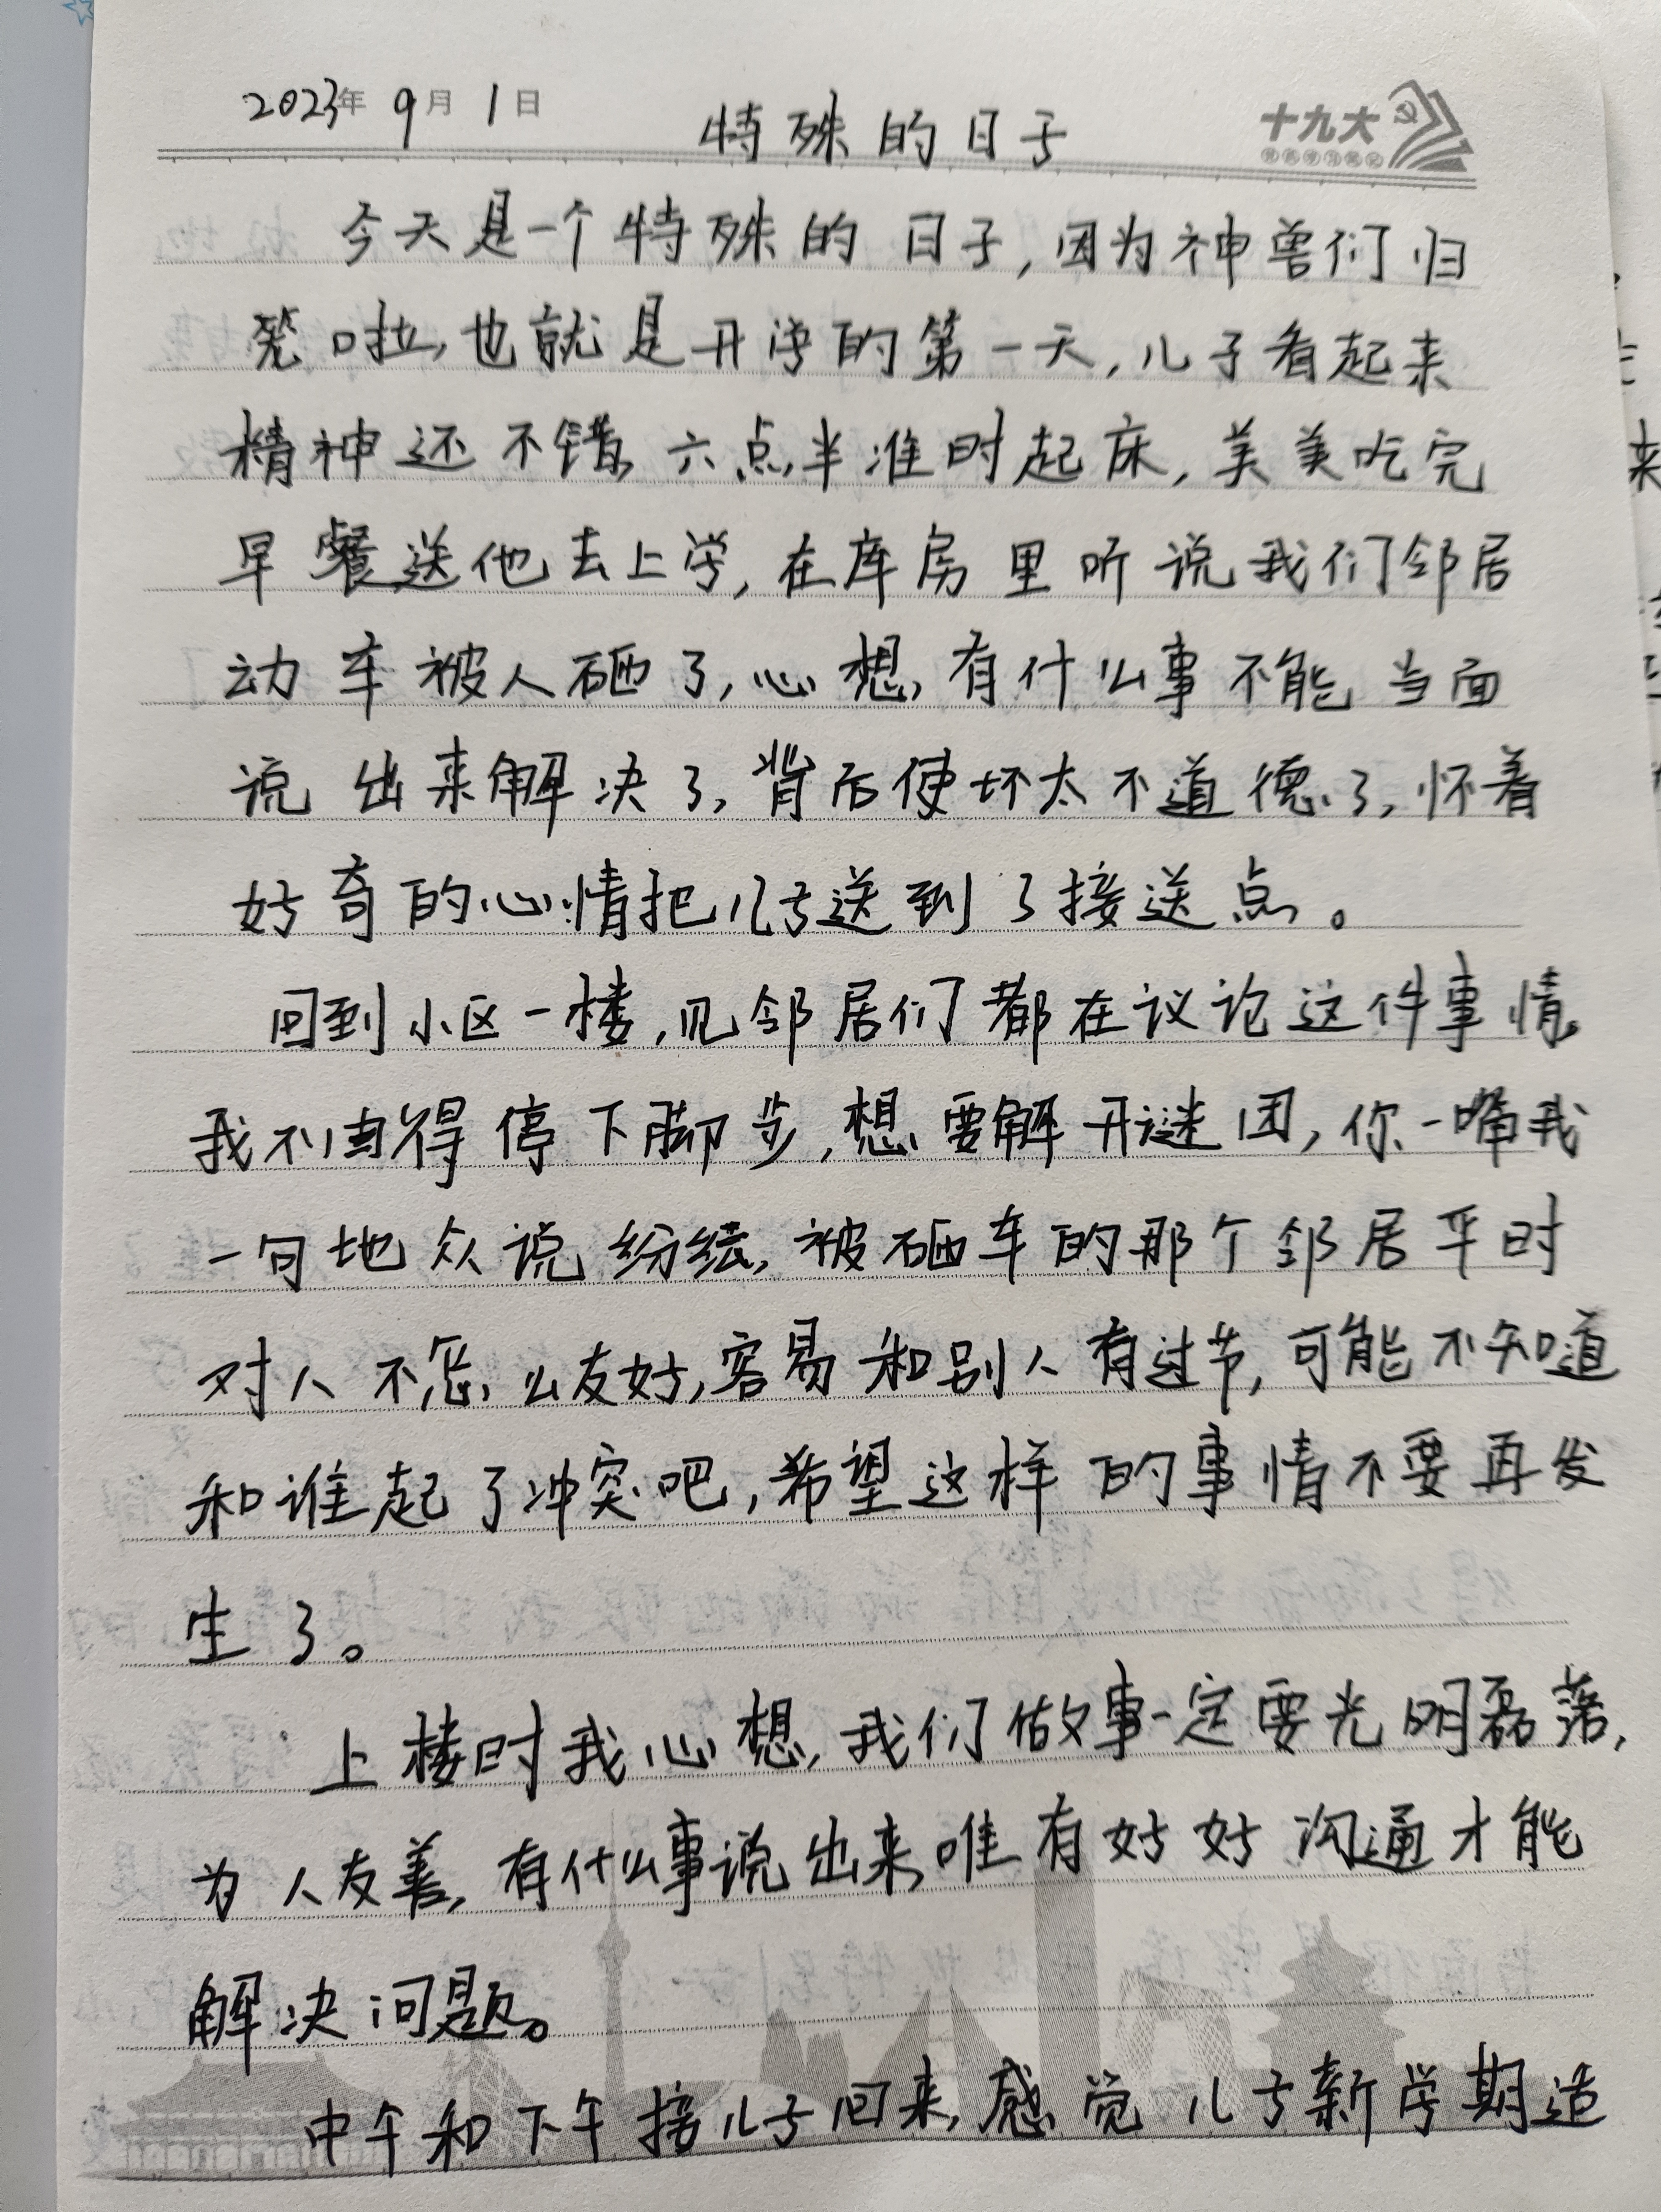 2023年 9月 1日
特殊的日子
十九大
今天是一个特殊的日子,因为神兽们归
笼啦,也就是开学的第一天,儿子看起来
精神还不错,六点半准时起床,美美吃完
早餐送他去上学,在库房里听说我们邻居
动车被人砸了,心想,有什么事不能当面
说出来解决了,背后使坏太不道德了,怀着
好奇的心情把儿子送到了接送点。
回到小区一楼,见邻居们都在议论这件事情,
我不由得停下脚步,想要解开谜团,你一嘴我
一句地众说纷纭,被砸车的那个邻居平时
对人不怎么友好,容易和别人有过节,可能不知道
和谁起了冲突吧,希望这样的事情不要再发
生了。
上楼时我心想,我们做事一定要光明磊落,
为人友善,有什么事说出来,唯有好好沟通才能
解决问题。
中午和下午接儿子回来,感觉儿子新学期适